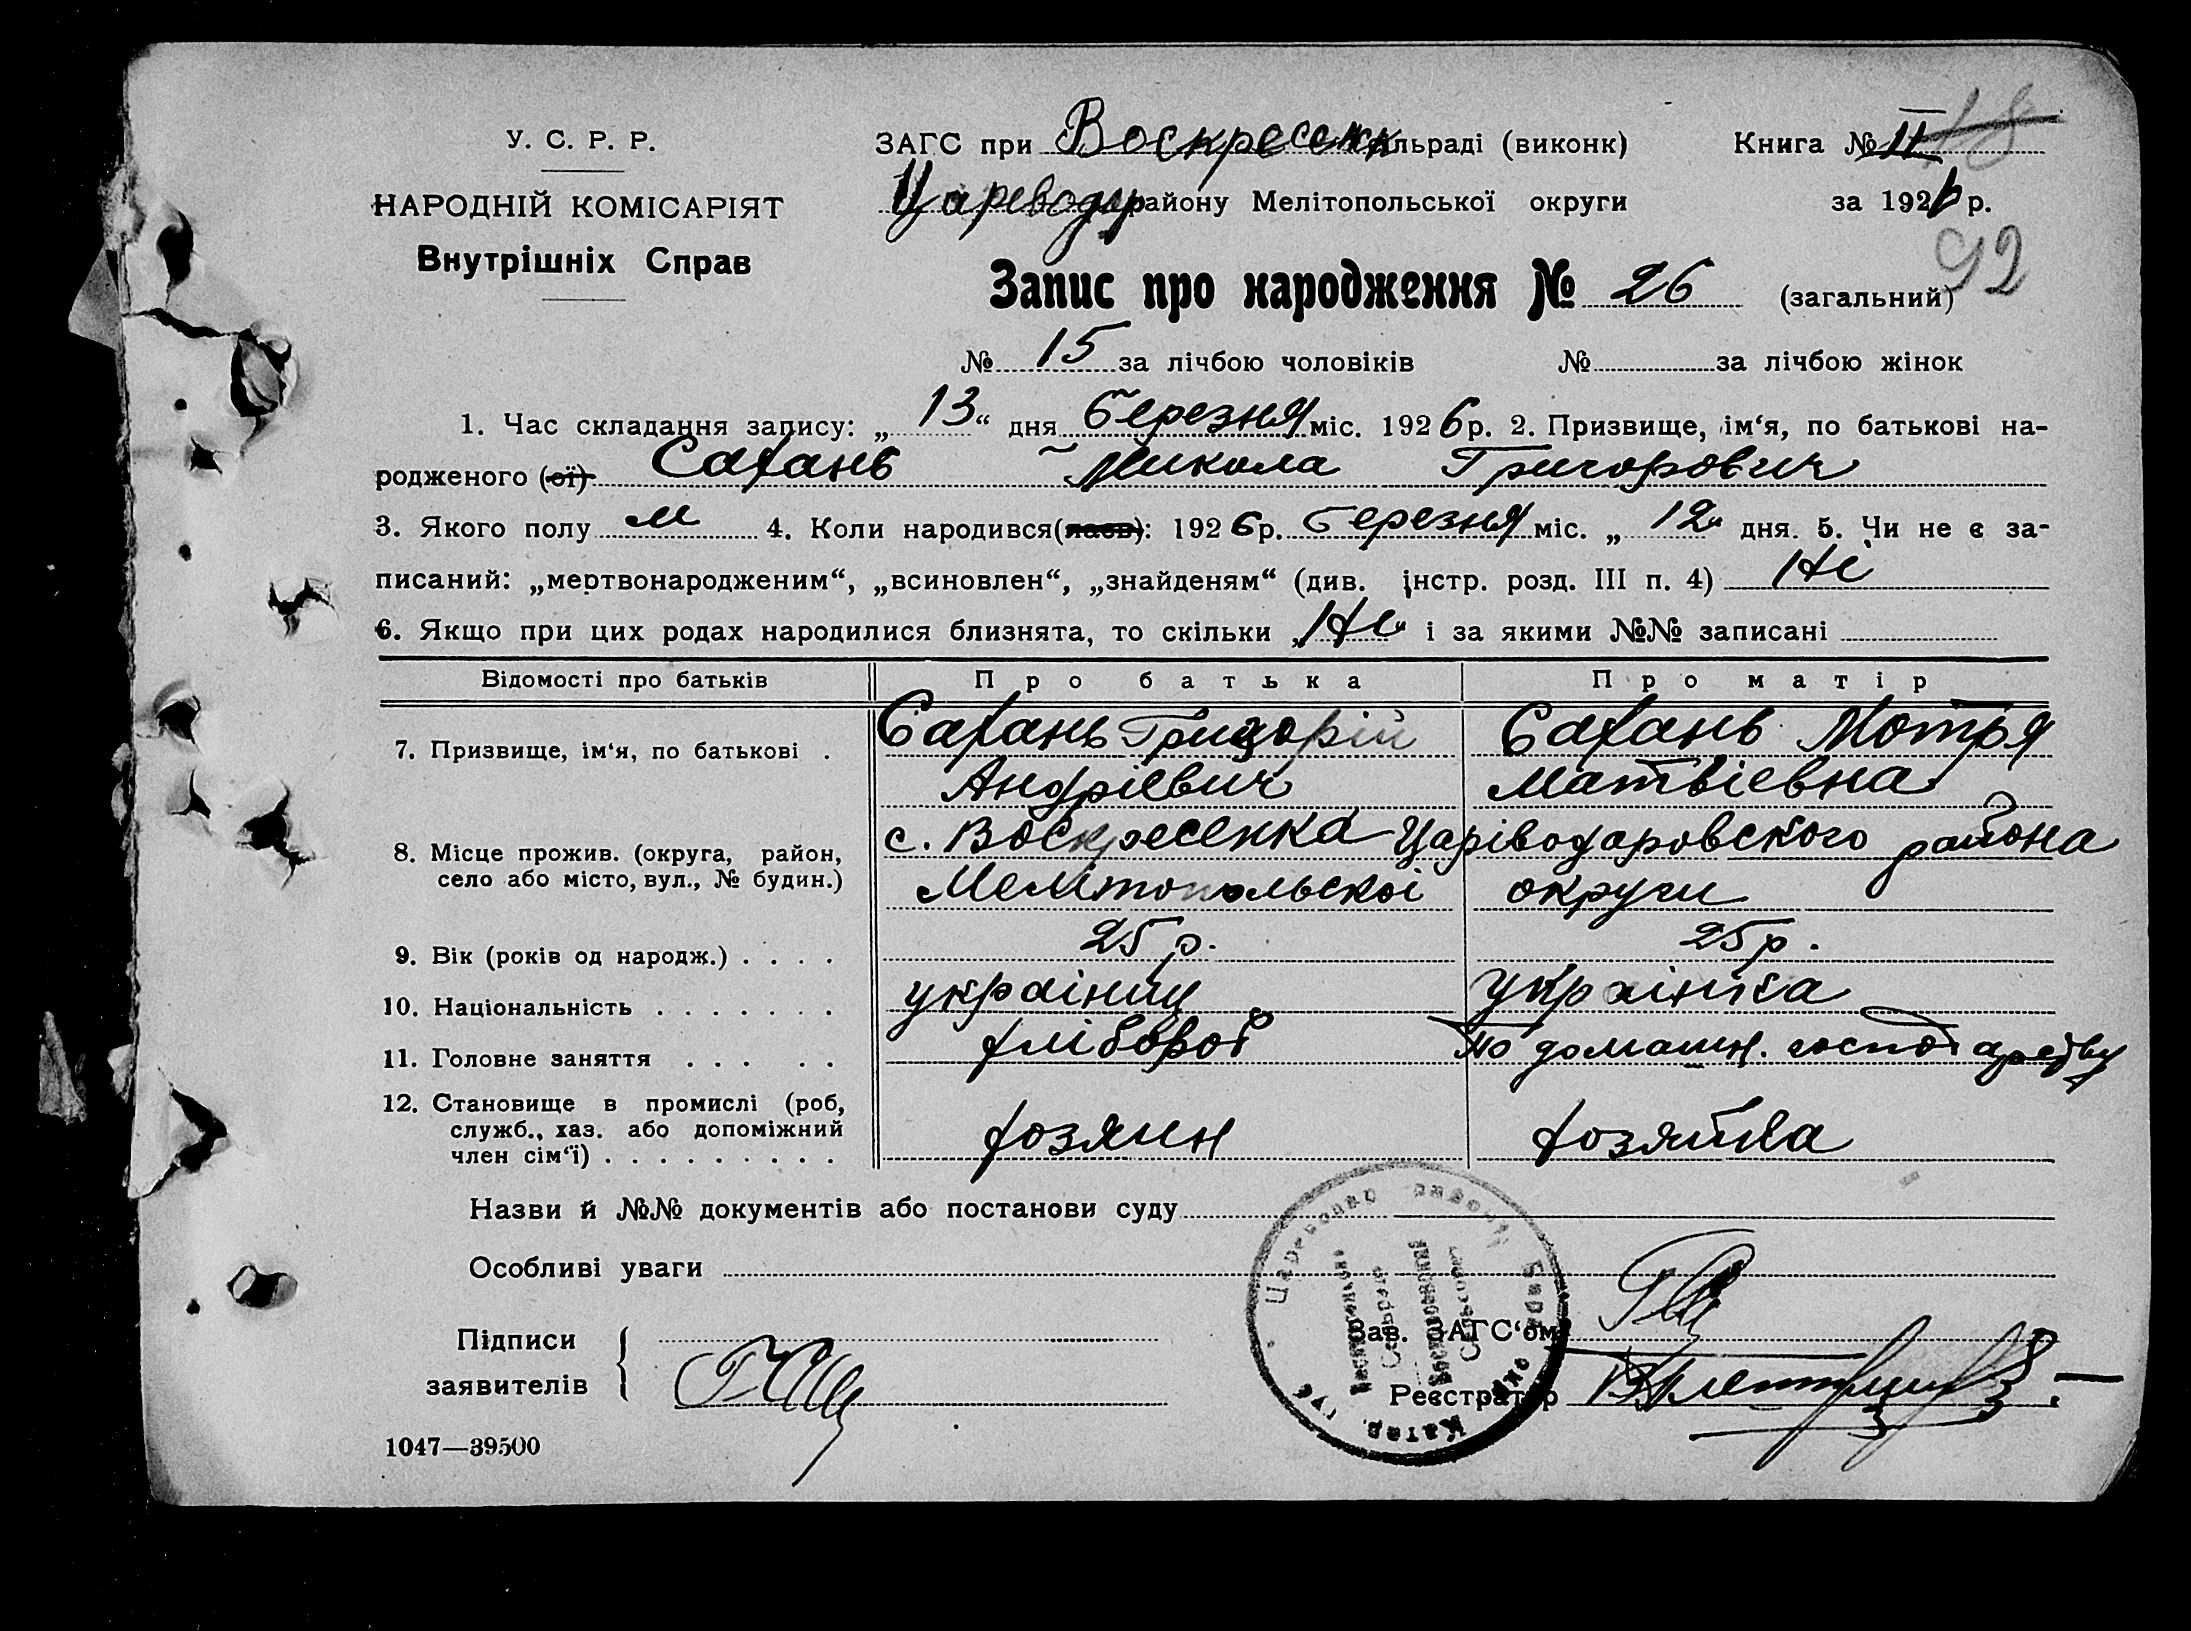 У. С. Р. Р.
НАРОДНІЙ КОМІСАРІЯТ
Внутрішніх Справ
ЗАГС при Воскресенк ільраді (виконк)
Книга № 11 18
Цареводар району Мелітопольської округи
за 1926 р.
92
Запис про народження № 26 (загальний)
№ 15 за лічбою чоловіків № за лічбою жінок
1. Час складання запису: „13“ дня березня міс. 1926 р. 2. Призвище, ім‘я, по батькові на-
родженого (ої) Сахань Микола Григорович
3. Якого полу м 4. Коли народився(лась): 1926 р. березня міс. „12“ дня. 5. Чи не є за-
писаний: „мертвонародженим“, „всиновлен“, „знайденям“ (див. інстр. розд. III п. 4) Ні
6. Якщо при цих родах народилися близнята, то скільки „Ні“ і за якими №№ записані
Відомості про батьків Про батька Про матір
7. Призвище, ім‘я, по батькові . Сахань Григорій Сахань Мотря
Андрієвич Матвіевна
8. Місце прожив. (округа, район, с. Воскресенка Царіводаровского района
село або місто, вул., № будин.) Мелітопольскоі округи
9. Вік (років од народж.) . . . . 25 р. 25 р.
10. Національність . . . . . . . украіниц украінка
11. Головне заняття . . . . . хлібороб По домашн. господарству
12. Становище в промислі (роб,
служб., хаз. або допоміжний хозяин хозяйка
член сім‘ї) . . . . . . . . .
Назви й №№ документів або постанови суду
Особливі уваги
Підписи
заявителів
Зав. ЗАГС‘ом
Реєстратор
1047—39500